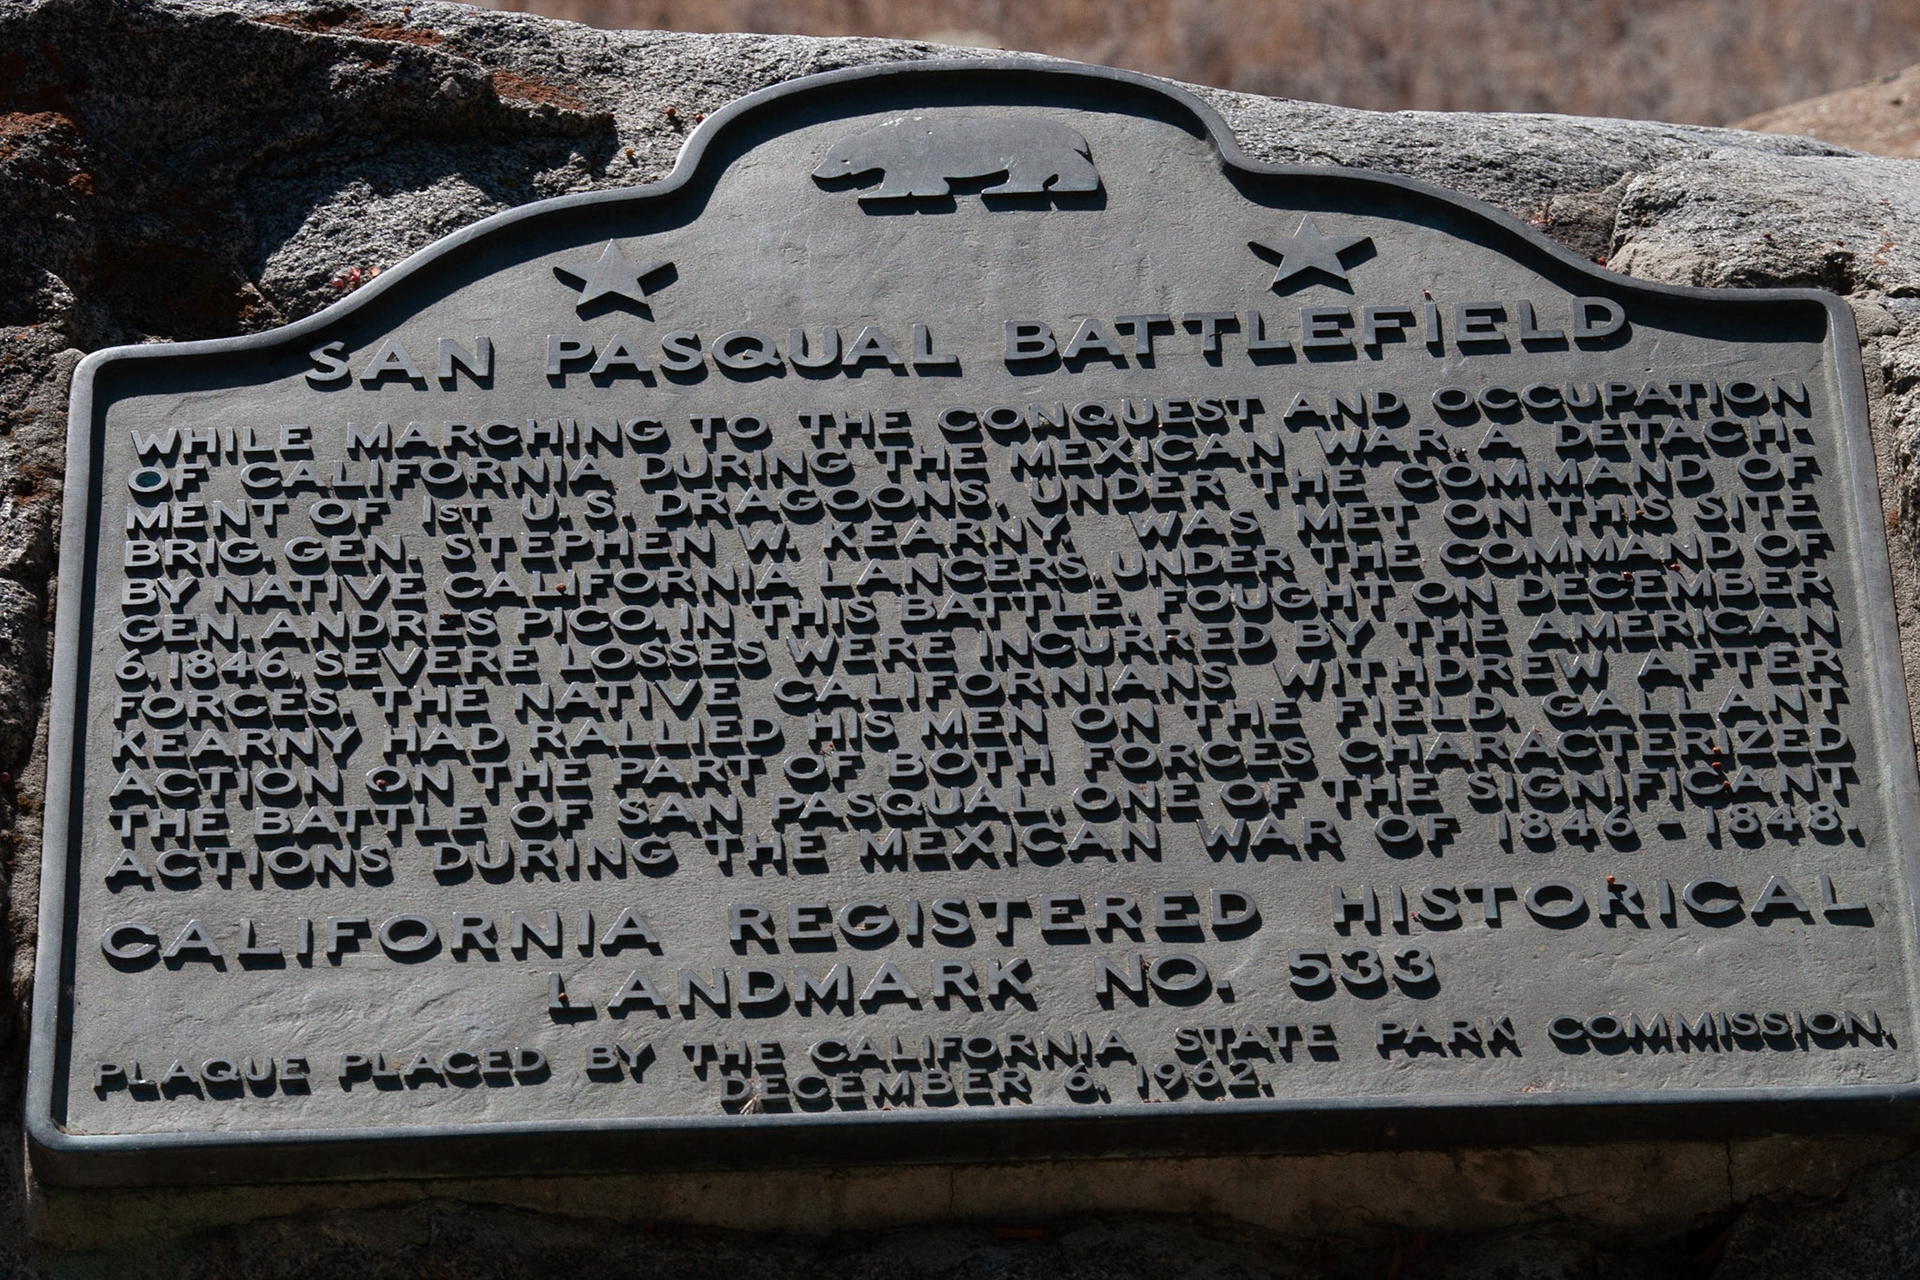 SAN PASQUAL BATTLEFIELD
WHILE MARCHING TO THE CONQUEST AND OCCUPATION
OF CALIFORNIA DURING THE MEXICAN WAR, A DETACH-
MENT OF 1ST U.S. DRAGOONS, UNDER THE COMMAND OF
BRIG. GEN. STEPHEN W. KEARNY, WAS MET ON THIS SITE
BY NATIVE CALIFORNIA LANCERS, UNDER THE COMMAND OF
GEN. ANDRES PICO. IN THIS BATTLE, FOUGHT ON DECEMBER
6, 1846, SEVERE LOSSES WERE INCURRED BY THE AMERICAN
FORCES. THE NATIVE CALIFORNIANS WITHDREW AFTER
KEARNY HAD RALLIED HIS MEN ON THE FIELD. GALLANT
ACTION ON THE PART OF BOTH FORCES CHARACTERIZED
THE BATTLE OF SAN PASQUAL, ONE OF THE SIGNIFICANT
ACTIONS DURING THE MEXICAN WAR OF 1846 - 1848.
CALIFORNIA REGISTERED HISTORICAL
LANDMARK NO. 533
PLAQUE PLACED BY THE CALIFORNIA STATE PARK COMMISSION,
DECEMBER 6, 1962.